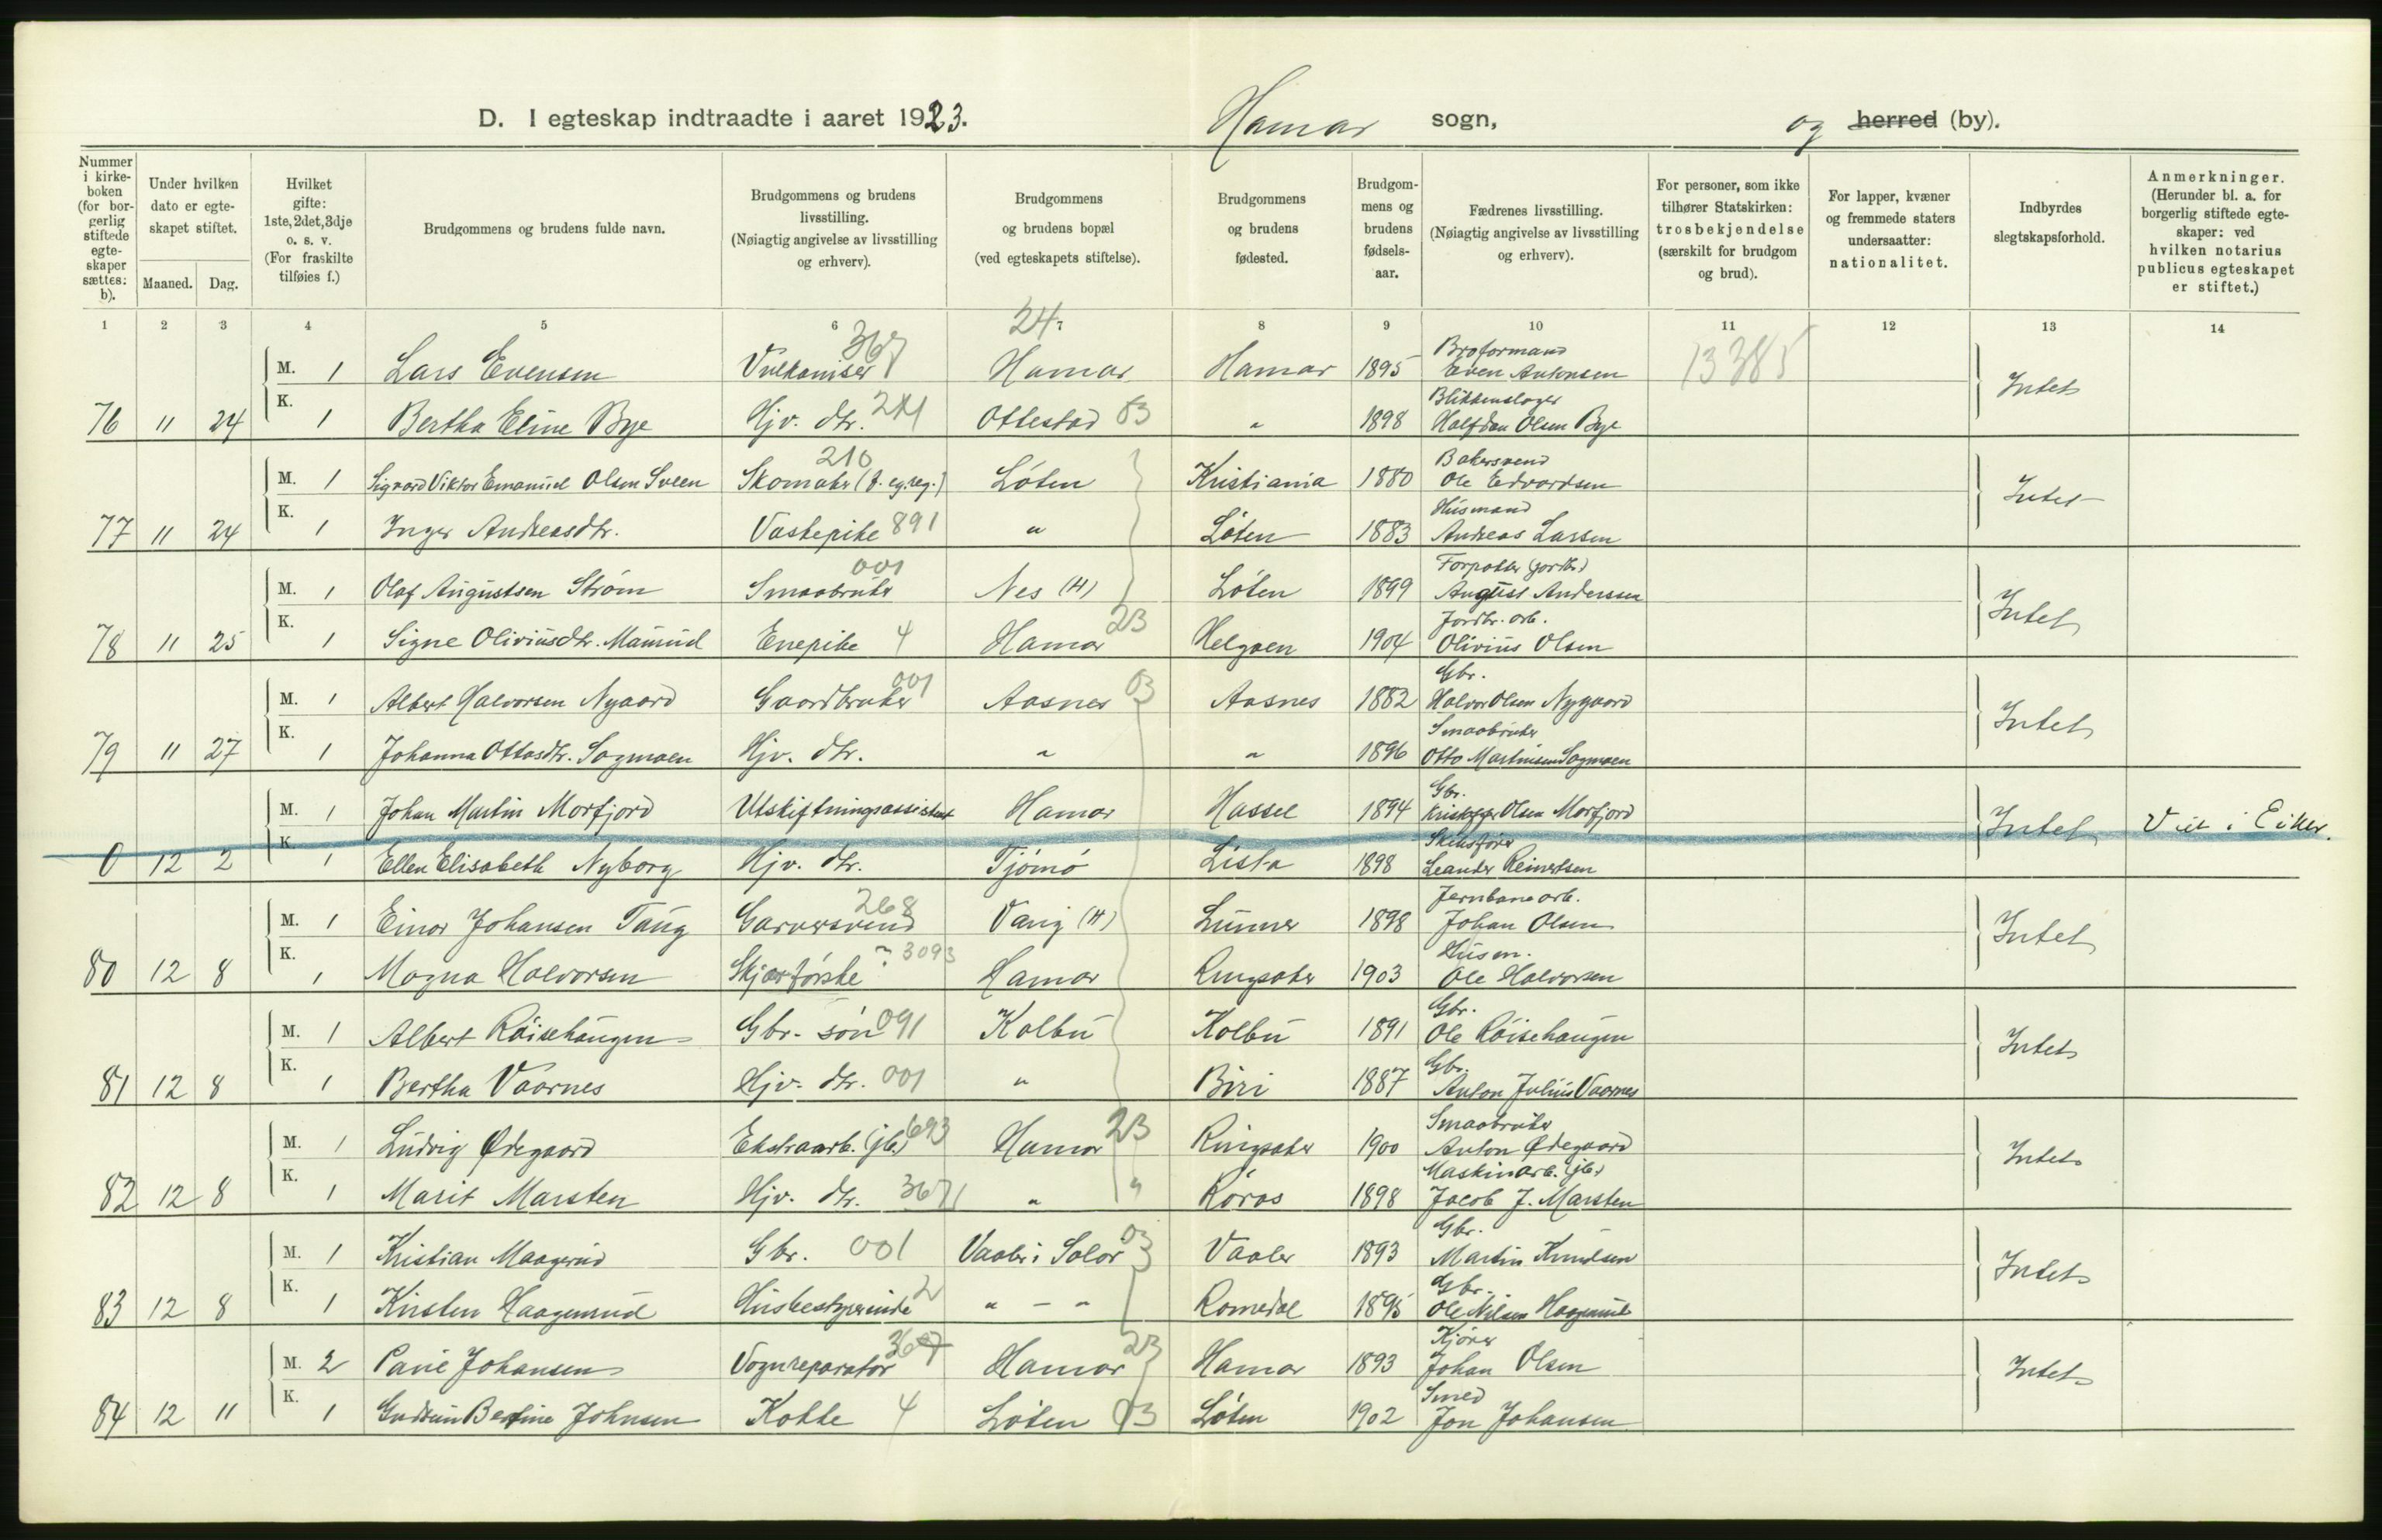 D. I egteskap indtraadte i aaret 1923. Hamar sogn, og herred (by).
Nummer i kirkeboken (for borgerlig stiftede egteskaper sættes: b).
Under hvilken dato er egteskapet stiftet.
Maaned. Dag.
Hvilket gifte: 1ste, 2det, 3dje o. s. v. (For fraskilte tilføies f.)
Brudgommens og brudens fulde navn.
Brudgommens og brudens livsstilling. (Nøiagtig angivelse av livsstilling og erhverv).
Brudgommens og brudens bopæl (ved egteskapets stiftelse).
Brudgommens og brudens fødested.
Brudgommens og brudens fødselsaar.
Fædrenes livsstilling. (Nøiagtig angivelse av livsstilling og erhverv).
For personer, som ikke tilhører Statskirken: trosbekjendelse (særskilt for brudgom og brud).
For lapper, kvæner og fremmede staters undersaatter: nationalitet.
Indbyrdes slegtskapsforhold.
Anmerkninger. (Herunder bl. a. for borgerlig stiftede egteskaper: ved hvilken notarius publicus egteskapet er stiftet.)
1 2 3 4 5 6 7 8 9 10 11 12 13 14
24
367 Broformand
M. 1 Lars Evensen Vulkaniser Hamar Hamar 1895 Even Antonsen 13385 Intet
Blikkenslager
76 11 24 K. 1 Bertha Eline Bye Hjv. dtr. 241 Ottestad 03 " 1898 Halfdan Olsen Bye
210 Bakersvend
M. 1 Sigvard Viktor Emanuel Olsen Sveen Skomaker (f. eg. reg.) Löten Kristiania 1880 Ole Edvardsen Intet
Husmand
77 11 24 K. 1 Inger Andreasdtr. Vaskepike 891 " Löten 1883 Andreas Larsen
001
M. 1 Olaf Augustsen Ström Smaabruker Nes (H) Löten 1899 August Anderssen Intet
23 Jordbr. arb.
78 11 25 K. 1 Signe Oliviusdtr. Mamud Enepike 4 Hamar Helgøen 1904 Olivius Olsen
001 Gbr.
M. 1 Albert Halvorsen Nygaard Gaardbruker Aasnes 03 Aasnes 1882 Halvor Olsen Nygaard Intet
Smaabruker
79 11 27 K. 1 Johanna Ottosdtr. Sagmoen Hjv. dtr. " " 1896 Otto Martinsen Sagmoen
Gbr.
M. 1 Johan Martin Morfjord Utskiftningsassistent Hamar Hassel 1894 Olsen Morfjord Intet Viet i Eiker.
0 12 2 K. 1 Ellen Elisabeth Nyborg Hjv. dtr. Tjömö Lista 1898 Leander Reinertsen
268 Jernbanearb.
M. 1 Einar Johansen Taug Garversvend Vang (H) Lunner 1898 Johan Olsen Intet
3093 Husm.
80 12 8 K. 1 Magna Halvorsen Hamar Ringsaker 1903 Ole Halvorsen
Gbr.
M. 1 Albert Röisehaugen Gbr. sön 091 Kolbu Kolbu 1891 Ole Röisehaugen Intet
Gbr.
81 12 8 K. 1 Bertha Vaarnes Hjv. dtr. 001 " Biri 1887 Anton Julius Vaarnes
693 Smaabruker
M. 1 Ludvig Ødegaard Ekstraarb. (jb.) Hamar 23 Ringsaker 1900 Anton Ødegaard Intet
Maskinarb. (jb.)
82 12 8 K. 1 Marit Marsten Hjv. dtr. 3671 " " Röros 1898 Jacob J. Marsten
Gbr.
M. 1 Kristian Maagerud Gbr. 001 Vaaler i Solör 03 Vaaler 1893 Martin Knudsen Intet
Gbr.
83 12 8 K. 1 Kirsten Haagenrud Husbestyrerinde 2 " - " Romedal 1895 Ole Nilsen Haagenrud
367 23 Kjörer
M. 2 Paul Johansen Vognreparatör Hamar Hamar 1893 Johan Olsen Intet
Smed
84 12 11 K. 1 Gudrun Bertine Johnsen Kokke 4 Löten 03 Löten 1902 Jon Johansen